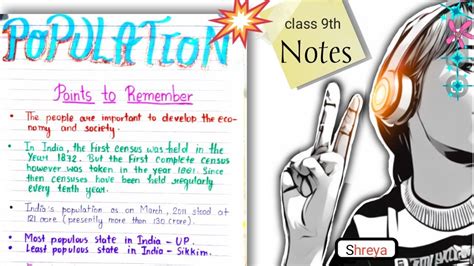 POPULATION
Points to Remember
• The people are important to develop the eco-
nomy and society.
• In India, the First census was held in the
Year 1872. But the First complete census
however was taken in the year 1881. Since
then censuses have been held regularly
every tenth year.
• India's population as on March, 2011 stood at
121 crore (presently more than 130 crore).
• Most populous state in India - UP.
• Least populous state in India - Sikkim.
class 9th
Notes
Shreya